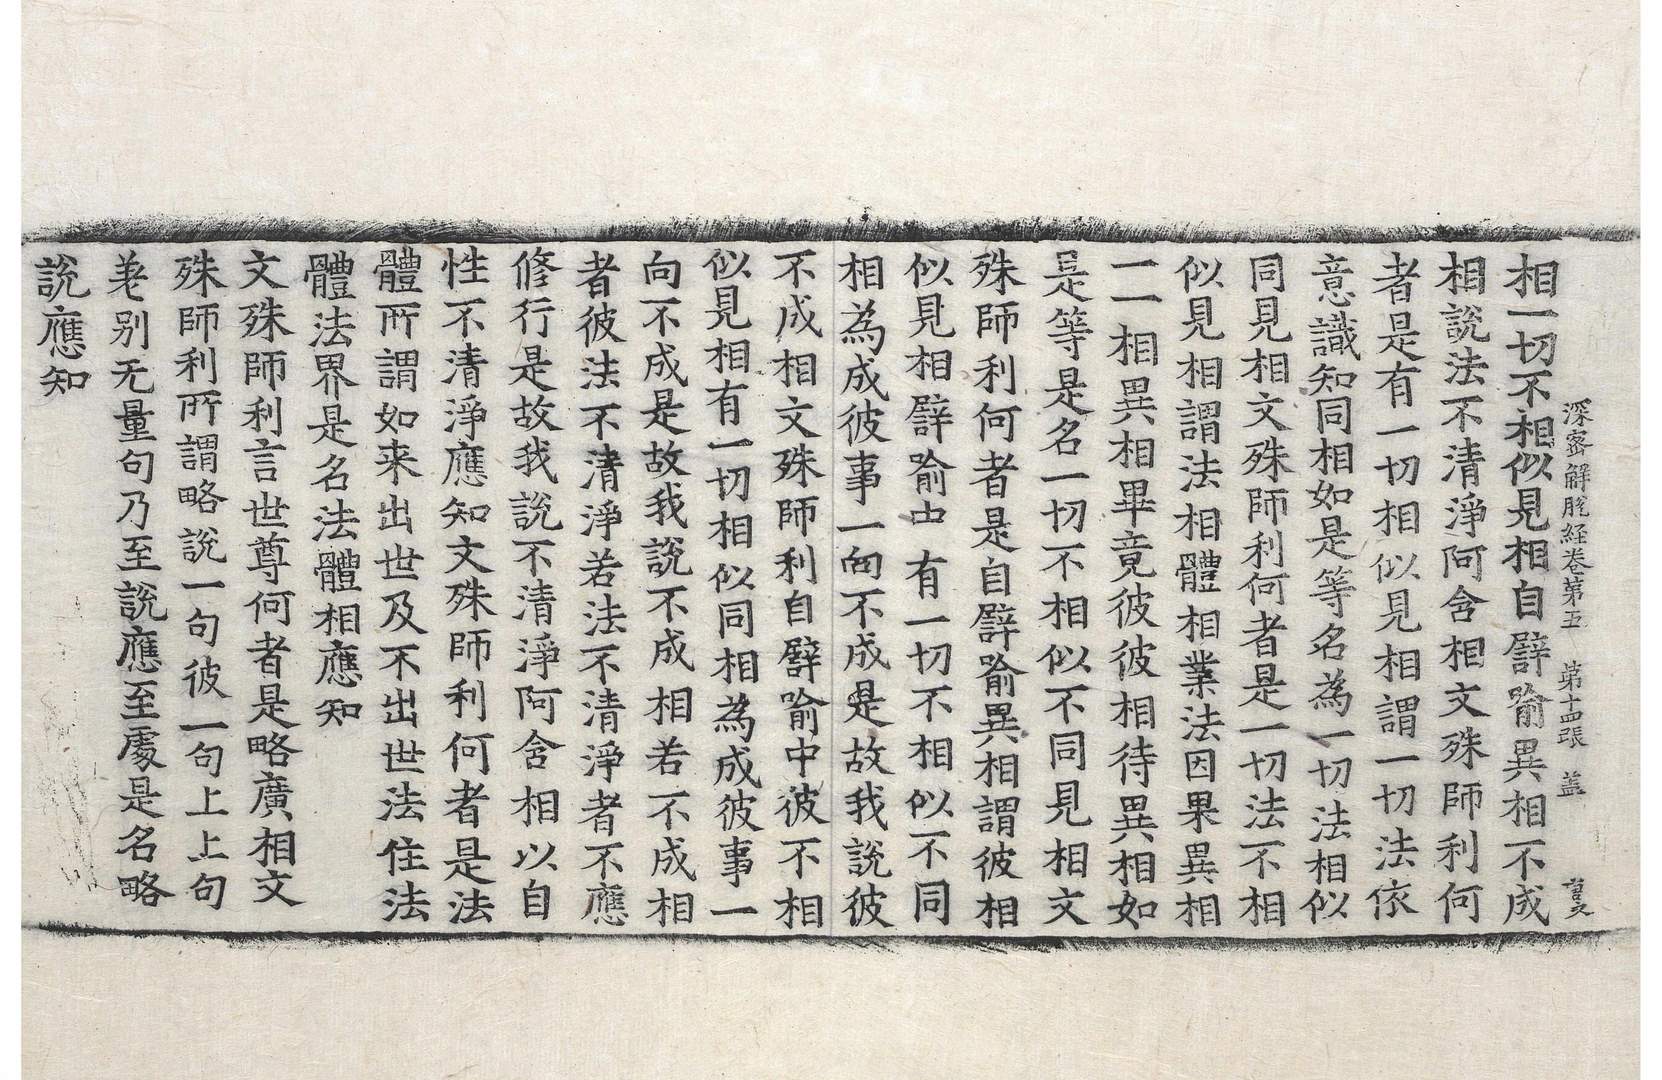 深密解脫經卷第五 第十四張 盖
相一切不相似見相自譬喻異相不成
相說法不清淨阿含相文殊師利何
者是有一切相似見相謂一切法依
意識知同相如是等名為一切法相似
同見相文殊師利何者是一切法不相
似見相謂法相體相業法因果異相
一一相異相畢竟彼彼相待異相如
是等是名一切不相似不同見相文
殊師利何者是自譬喻異相謂彼相
似見相譬喻中有一切不相似不同
相為成彼事一向不成是故我說彼
不成相文殊師利自譬喻中彼不相
似見相有一切相似同相為成彼事一
向不成是故我說不成相若不成相
者彼法不清淨若法不清淨者不應
修行是故我說不清淨阿含相以自
性不清淨應知文殊師利何者是法
體所謂如来出世及不出世法住法
體法界是名法體相應知
文殊師利言世尊何者是略廣相文
殊師利所謂略說一句彼一句上上句
差别无量句乃至說應至處是名略
說應知